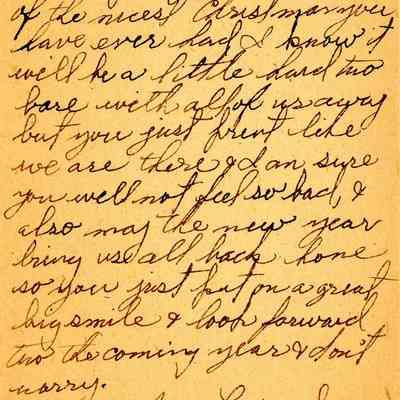 of the nicest Christmas you
have ever had & I know it
will be a little hard two
bare with all of us away
but you just prent like
we are there & I am sure
you well not feel so bad, &
also may the new year
bring us all back home
so you just put on a great
big smile & look forward
two the coming year & don't
warry.